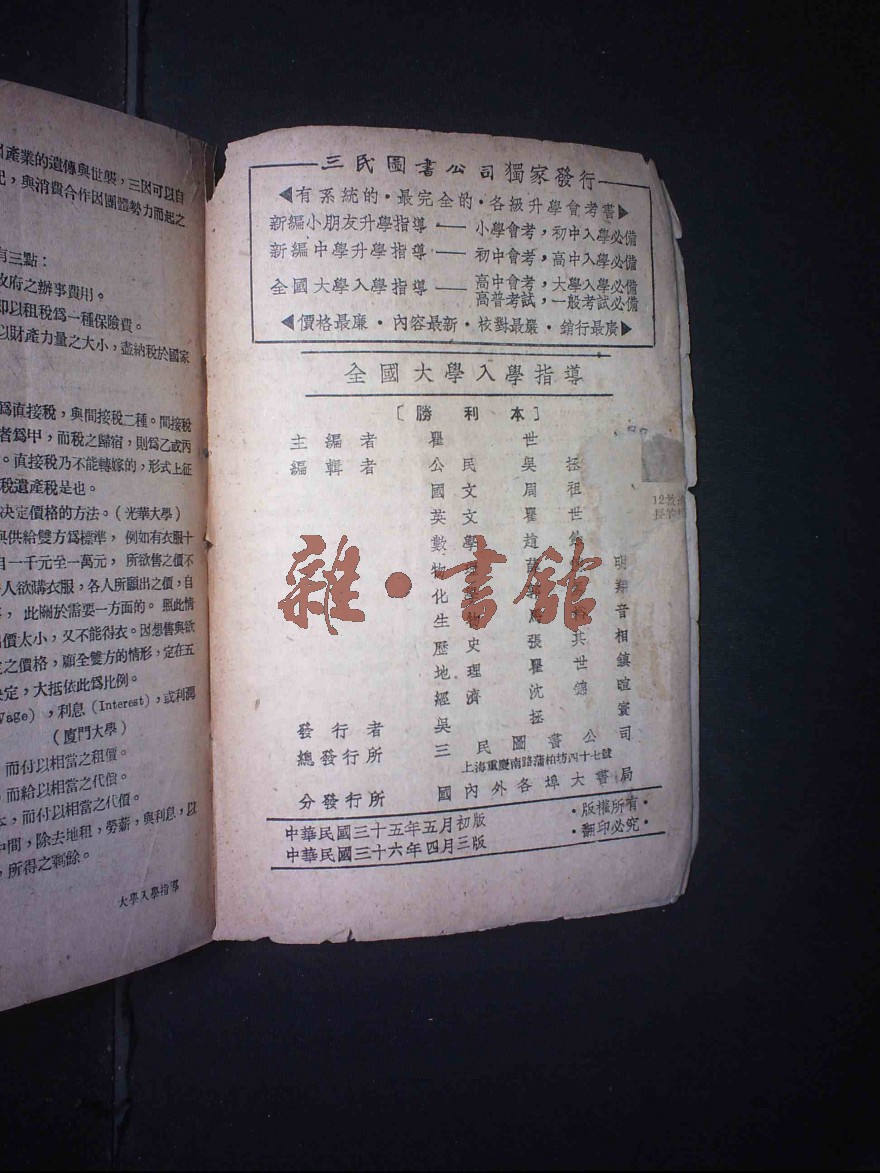 產業的遺傳與世襲，三因可以自
，與消費合作因團體勢力而起之
有三點：
政府之辦事費用。
即以租稅爲一種保險費。
以財產力量之大小，盡納稅於國家
爲直接稅，與間接稅二種。間接稅
者爲甲，而稅之歸宿，則爲乙或丙
。直接稅乃不能轉嫁的，形式上征
稅遺產稅是也。
決定價格的方法。（光華大學）
與供給雙方爲標準， 例如有衣服十
自一千元至一萬元， 所欲售之價不
人欲購衣服，各人所願出之價，自
， 此關於需要一方面的。 照此情
出價太小，又不能得衣。因想售與欲
定之價格，顧全雙方的情形，定在五
決定，大抵依此爲比例。
Wage），利息（Interest），或利潤
（廈門大學）
，而付以相當之租價。
，而給以相當之代價。
本，而付以相當之代價。
中間，除去地租，勞薪，與利息，以
，所得之剩餘。
大學入學指導
三民圖書公司獨家發行
◀有系統的・最完全的・各級升學會考書▶
新編小朋友升學指導・——小學會考，初中入學必備
新編中學升學指導・——初中會考，高中入學必備
全國大學入學指導——高中會考，大學入學必備
高普考試，一般考試必備
◀價格最廉・內容最新・核對最嚴・銷行最廣▶
全國大學入學指導
〔勝利本〕
主編者 瞿世
編輯者 公民 吳拯
國文 周祖
英文 瞿世
數學 趙
物理 明
化 翔
生物 音
歷史 張其相
地理 瞿世鎮
經濟 沈鎴暄
發行者 吳拯寰
總發行所 三民圖書公司
上海重慶南路蒲柏坊四十七號
分發行所 國內外各埠大書局
中華民國三十五年五月初版
中華民國三十六年四月三版
・版權所有・
・翻印必究・
雜・書館